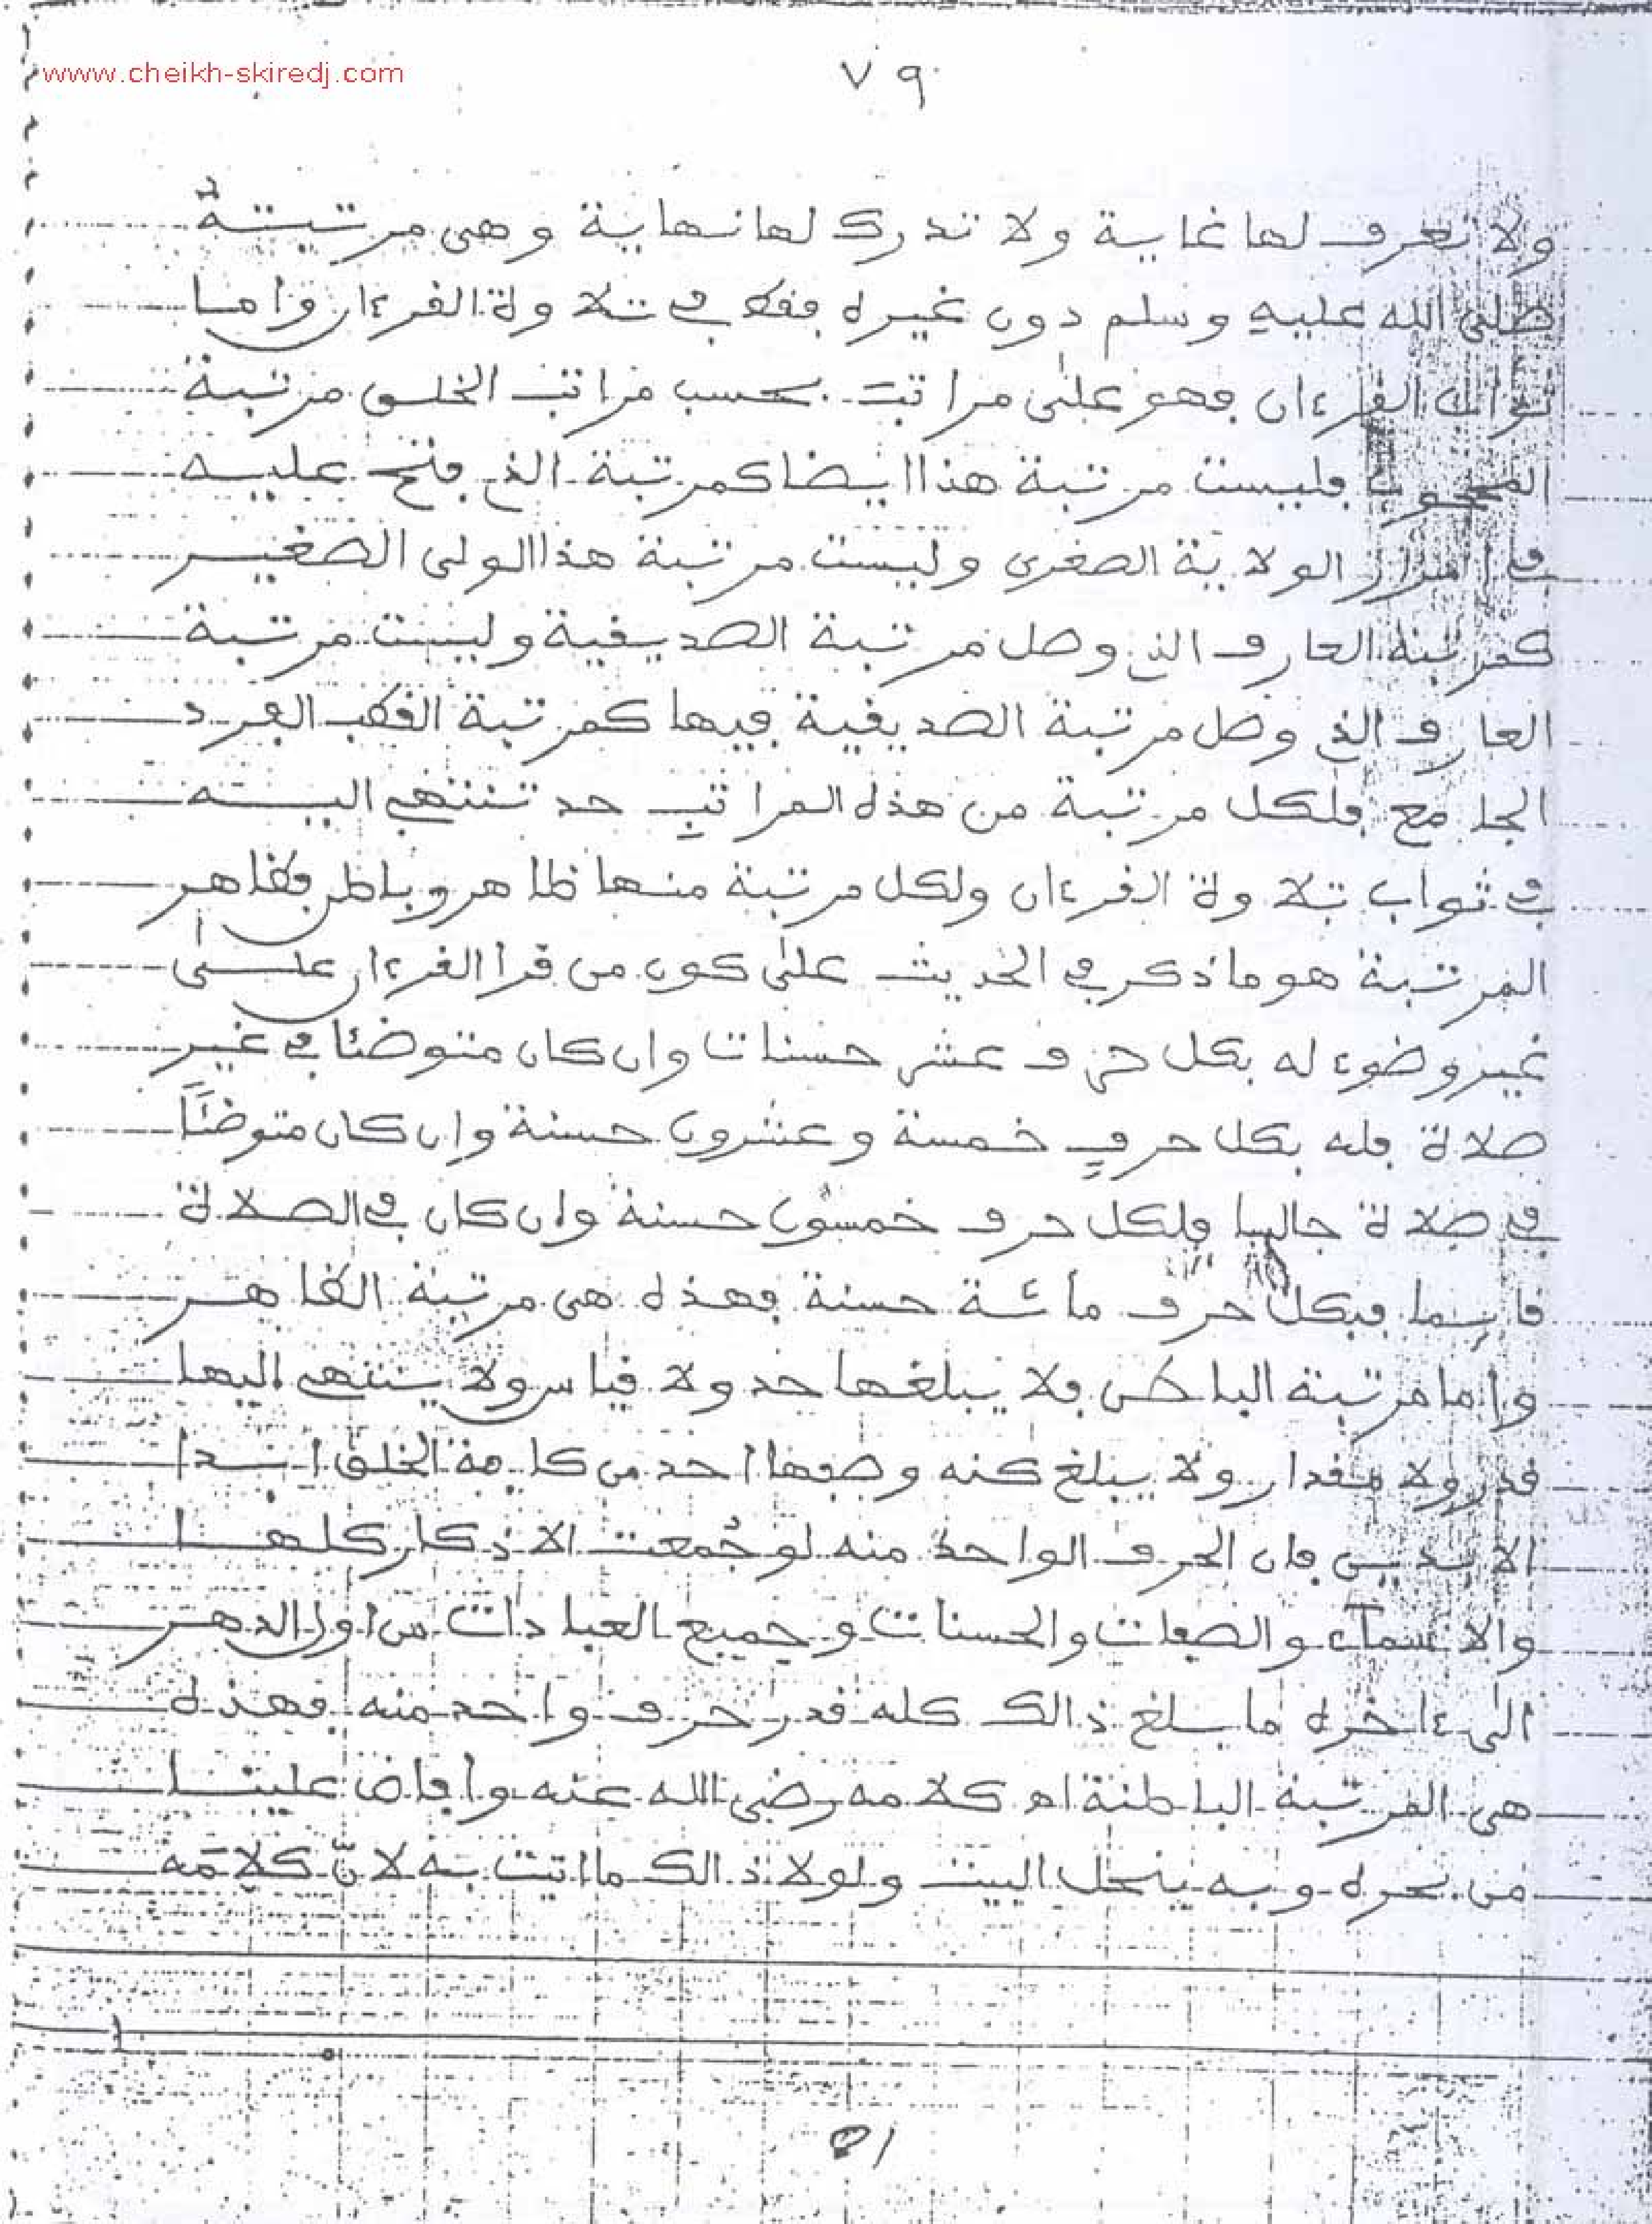 www.cheikh-skiredj.com
٧٩
ولا تعرف لها غاية ولا تدرك لها نهاية وهى مرتبتة
صلى الله عليه وسلم دون غيره فقط في تلاوة القرءان واما
ثواب القرءان فهو على مراتب بحسب مراتب الخلق مرتبة
المحجوب فليست مرتبة هذا ايضا كمرتبة الذي فتح عليه
في الولاية الصغرى وليست مرتبة هذا الولى الصغير
كمرتبة العارف الذي وصل مرتبة الصديقية وليست مرتبة
العارف الذي وصل مرتبة الصديقية فيها كمرتبة القطب الفرد
الجامع فلكل مرتبة من هذه المراتب حد تنتهي اليه
في ثواب تلاوة القرءان ولكل مرتبة منها ظاهر وباطن فظاهر
المرتبة هو ما ذكر في الحديث على كون من قرأ القرءان على
غير وضوء له بكل حرف عشر حسنات وان كان متوضئا في غير
صلاة فله بكل حرف خمسة وعشرون حسنة وان كان متوضئًا
في صلاة جالسا فلكل حرف خمسون حسنة وان كان في الصلاة
قائما فبكل حرف مائة حسنة فهذه هى مرتبة الظاهر
واما مرتبة الباطن فلا يبلغها حد ولا قياس ولا ينتهي اليها
قدر ولا مقدار ولا يبلغ كنه وصفها احد من كافة الخلق ابدا
الابدين فان الحرف الواحد منه لو جُمعت الاذكار كلها
والاسمآء والصفات والحسنات وجميع العبادات من اول الدهر
الى ءاخره ما بلغ ذالك كله قدر حرف واحد منه فهذه
هى المرتبة الباطنة اهـ كلامه رضي الله عنه وأفاض علينا
من بحره وبه ينحل البيت ولولا ذالك ما اتيت به لانّ كلامَه